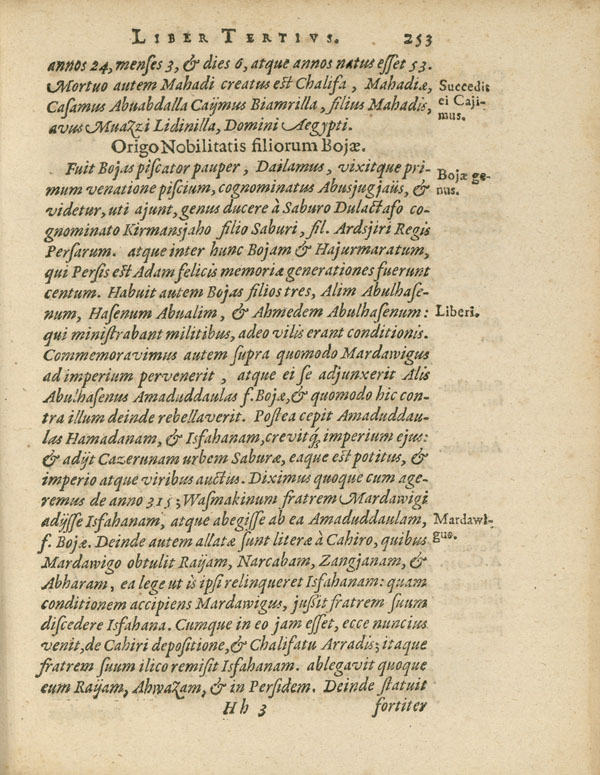 LIBER TERTIVS. 253
annos 24, menses 3, & dies 6, atque annos natus esset 53.
Mortuo autem Mahadi creatus est Chalifa, Mahadiæ,
Casamus Abuabdalla Caijmus Biamrilla, filius Mahadis,
avus Muazzi Lidinilla, Domini Aegypti.
Succedit
ei Caji-
mus.
Origo Nobilitatis filiorum Bojæ.
Fuit Bojas piscator pauper, Dailamus, vixitque pri-
mum venatione piscium, cognominatus Abusjugjaüs, &
videtur, uti ajunt, genus ducere à Saburo Dulactafo co-
gnominato Kirmansjaho filio Saburi, fil. Ardsjiri Regis
Persarum. atque inter hunc Bojam & Hajurmaratum,
qui Persis est Adam felicis memoriæ generationes fuerunt
centum. Habuit autem Bojas filios tres, Alim Abulhase-
num, Hasenum Abualim, & Ahmedem Abulhasenum:
qui ministrabant militibus, adeo vilis erant conditionis.
Commemoravimus autem supra quomodo Mardawigus
ad imperium pervenerit, atque ei se adjunxerit Alis
Abulhasenus Amaduddaulas f. Bojæ, & quomodo hic con-
tra illum deinde rebellaverit. Postea cepit Amaduddau-
las Hamadanam, & Isfahanam, crevitq́; imperium ejus:
& adijt Cazerunam urbem Saburæ, eaque est potitus, &
imperio atque viribus auctus. Diximus quoque cum age-
remus de anno 315; Wasmakinum fratrem Mardawigi
adijsse Isfahanam, atque abegisse ab ea Amaduddaulam,
f. Bojæ. Deinde autem allatæ sunt literæ à Cahiro, quibus
Mardawigo obtulit Raijam, Narcabam, Zangjanam, &
Abharam, ea lege ut is ipsi relinqueret Isfahanam: quam
conditionem accipiens Mardawigus, jussit fratrem suum
discedere Isfahana. Cumque in eo jam esset, ecce nuncius
venit, de Cahiri depositione, & Chalifatu Arradis; itaque
fratrem suum ilico remisit Isfahanam. ablegavit quoque
eum Raijam, Ahwazam, & in Persidem. Deinde statuit
Bojæ ge-
nus.
Liberi.
Mardawi-
gus.
Hh 3 fortiter